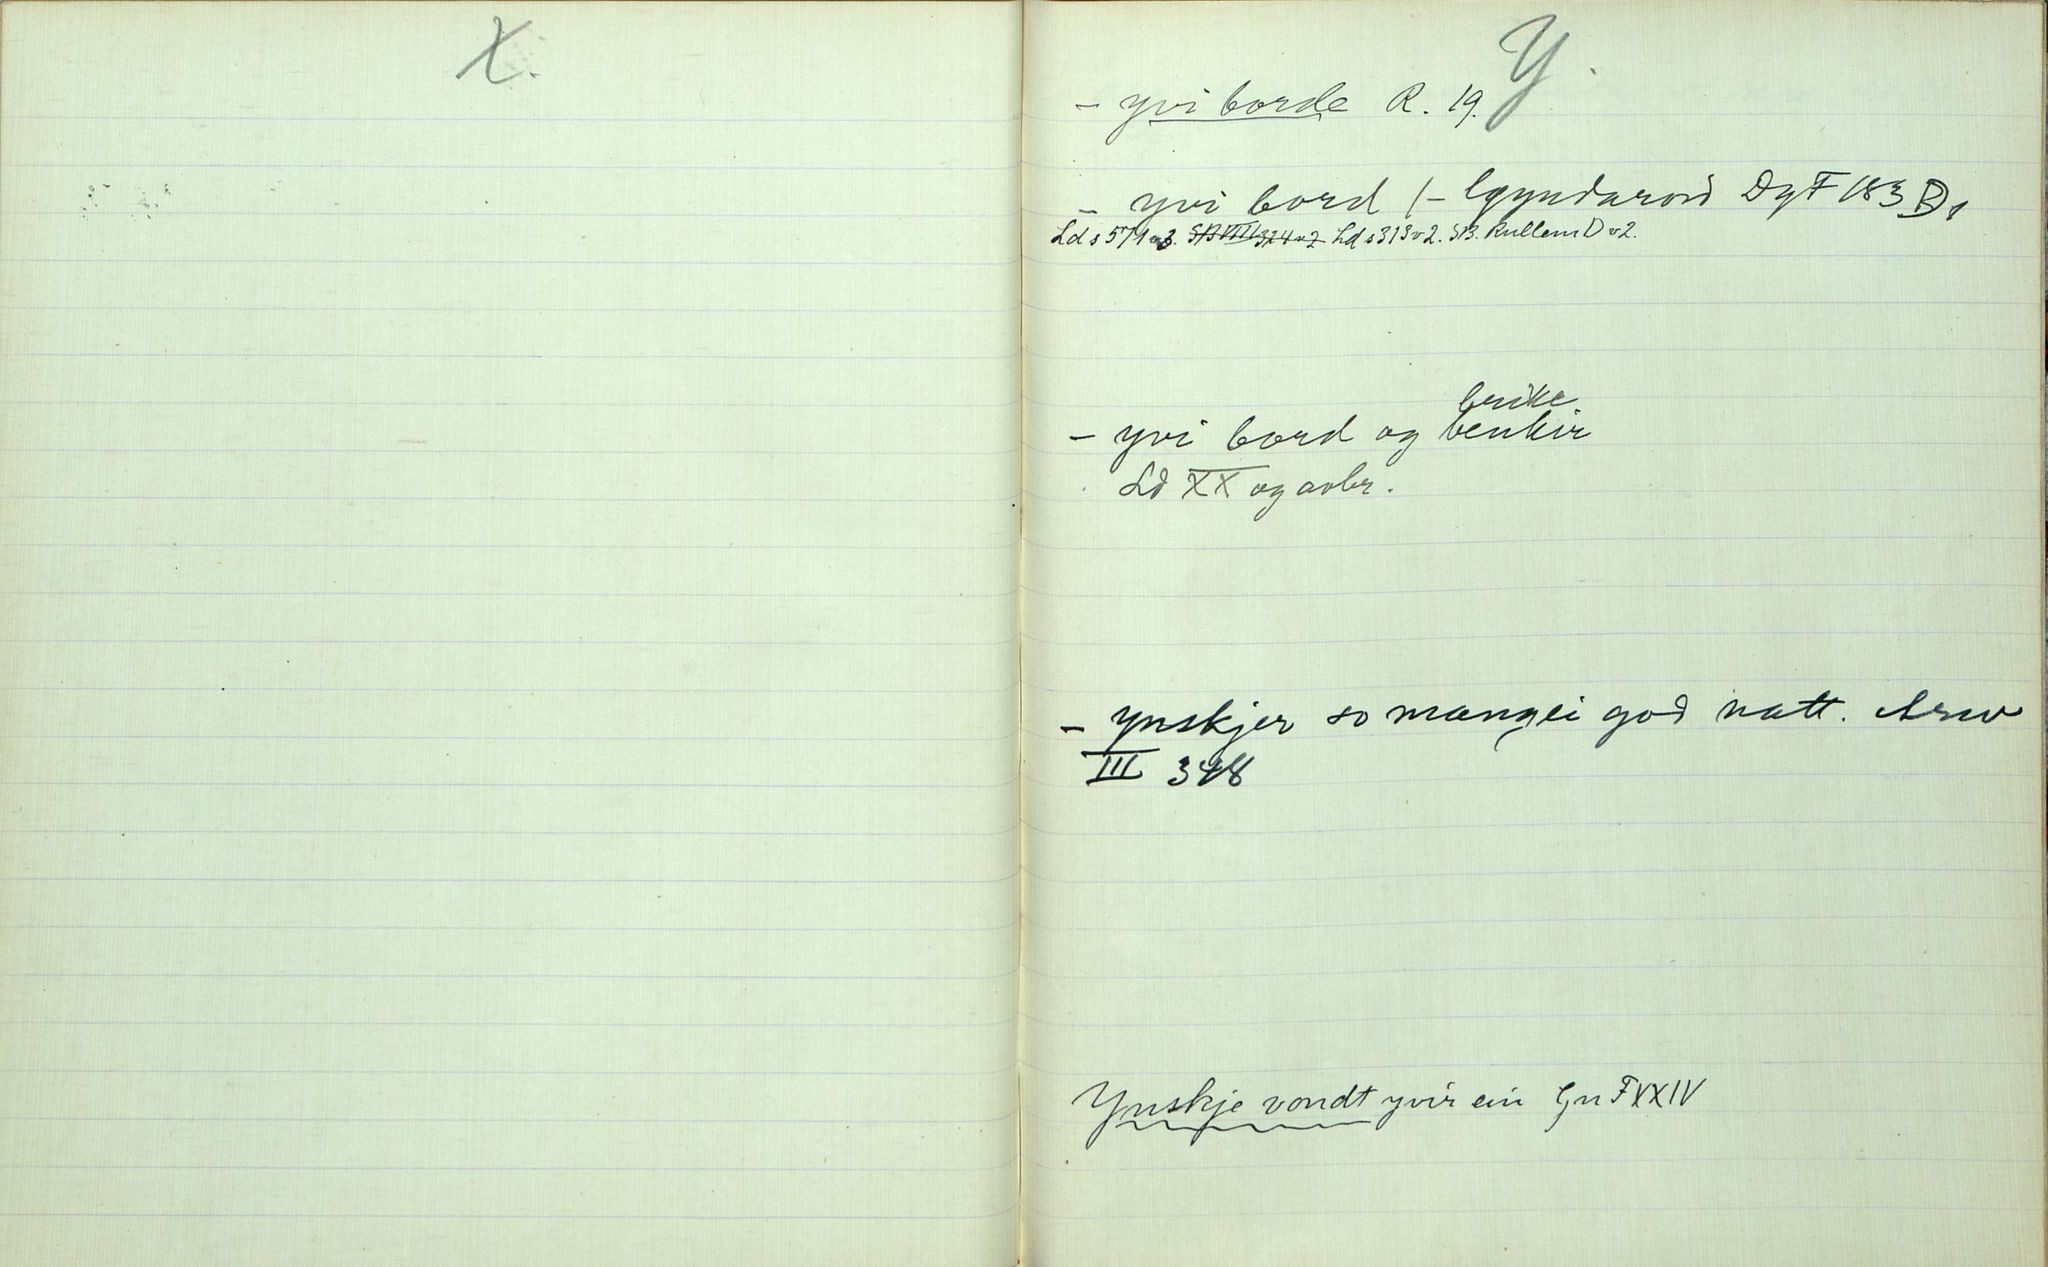 X.
Y.
- yvi borde R. 19.
- yvi bord / - DgF 183 B,
Ld s 571 v 3. SB VIII 324 v 2 Ld s 313 v 2. SB. Rullem D v 2.
brike
- yvi bord og benkir
Ld XX og avbr.
- ynskjer so mangei god natt.
III 348
Ynskje vondt yvir ein Gn F XXIV